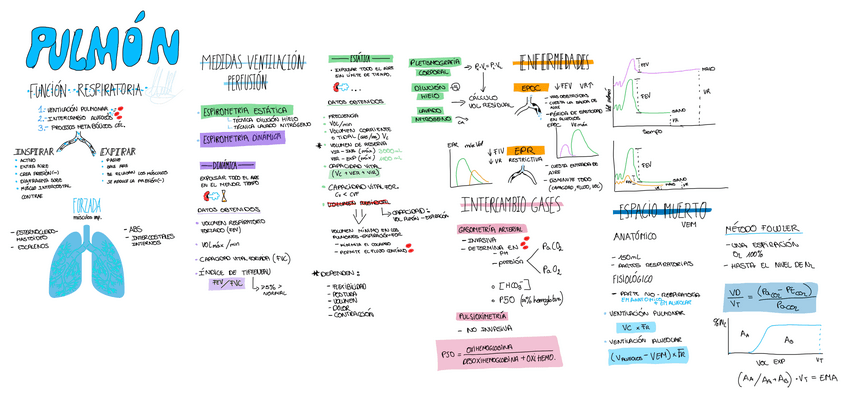 PULMÓN
FUNCIÓN RESPIRATORIA
1. VENTILACIÓN PULMONAR
2. INTERCAMBIO ALVEOLO
3. PROCESOS METABÓLICOS CEL.
INSPIRAR
ACTIVO
ENTRA AIRE
CREA PRESIÓN (-)
DIAFRAGMA BAJA
MÚSCULO INTERCOSTAL
CONTRAE
EXPIRAR
PASIVO
SALE AIRE
SE RELAJAN LOS MÚSCULOS
SE REDUCE LA PRESIÓN (-)
FORZADA
ESTERNOCLEIDO
MASTOIDEO
ESCALENOS
ABS
INTERCOSTALES
INTERNOS
MEDIDAS VENTILACIÓN
PERFUSIÓN
ESPIROMETRIA ESTÁTICA
TÉCNICA DILUCIÓN HIELO
TÉCNICA LAVADO NITRÓGENO
ESPIROMETRIA DINÁMICA
DINÁMICA
EXPULSAR TODO EL AIRE
EN EL MENOR TIEMPO
DATOS OBTENIDOS
VOLUMEN RESPIRATORIO
FORZADO (FEV)
VOL máx / min
CAPACIDAD VITAL FORZADA (FVC)
ÍNDICE DE TIFFENEAU
FEV/FVC
>75%
NORMAL
ESTÁTICA
EXPULSAR TODO EL AIRE
SIN LÍMITE DE TIEMPO.
DATOS OBTENIDOS
FRECUENCIA
VOL/min
VOLUMEN CORRIENTE
VOLUMEN DE RESERVA
CAPACIDAD VITAL
(VC + VER + VIR)
CAPACIDAD VITAL FOR.
CV < CVF
VOLUMEN RESIDUAL
CAPACIDAD:
VOL PULMÓN - ESPIRACIÓN
VOLUMEN MÍNIMO EN LOS
PERMITE EL FLUJO CONTINUO
# DEPENDEN:
FLEXIBILIDAD
POSTURA
VOLUMEN
DOLOR
CONTRACCIÓN
PLETISMOGRAFÍA
CORPORAL
DILUCIÓN
HIELO
LAVADO
NITRÓGENO
CÁLCULO
VOL RESIDUAL
ENFERMEDADES
EPOC
↓FEV VR↑
VÍAS OBSTRUIDAS
CUESTA LA SALIDA DE
AIRE
PÉRDIDA DE ELASTICIDAD
EN ALVEOLOS
EPOC
VR máx
EPR
min Vol
↓FEV
↓VR
EPR
RESTRICTIVA
CUESTA ENTRADA DE
AIRE
DISMINUYE TODO
(CAPACIDAD, FLUJO, VOL)
FEV
SANO
VR
Tiempo
FEV
SANO
VR
INTERCAMBIO GASES
GASOMETRÍA ARTERIAL
INVASIVA
DETERMINA EN
PH
PRESIÓN
PaCO₂
PaO₂
[HCO₃⁻]
P50 (50% hemoglobina)
PULSIOXIMETRÍA
NO INVASIVA
P50 = OXIHEMOGLOBINA / DESOXIHEMOGLOBINA + OXIHEMO.
ESPACIO MUERTO
VEM
ANATÓMICO
150ml
PARTES RESPIRATORIAS
FISIOLÓGICO
PARTE NO RESPIRATORIA
EM ANATÓMICO + EM ALVEOLAR
VENTILACIÓN PULMONAR
VC × FR
VENTILACIÓN ALVEOLAR
(VALVEOLOS - VEM) × FR
MÉTODO FOWLER
UNA ESPIRACIÓN
O₂ 100%
HASTA EL NIVEL DE N₂
VD/VT = (PaCO₂ - PECO₂) / PaCO₂
%N₂
AA
AB
VOL EXP
VT
(AA / AA + AB) · VT = EMA